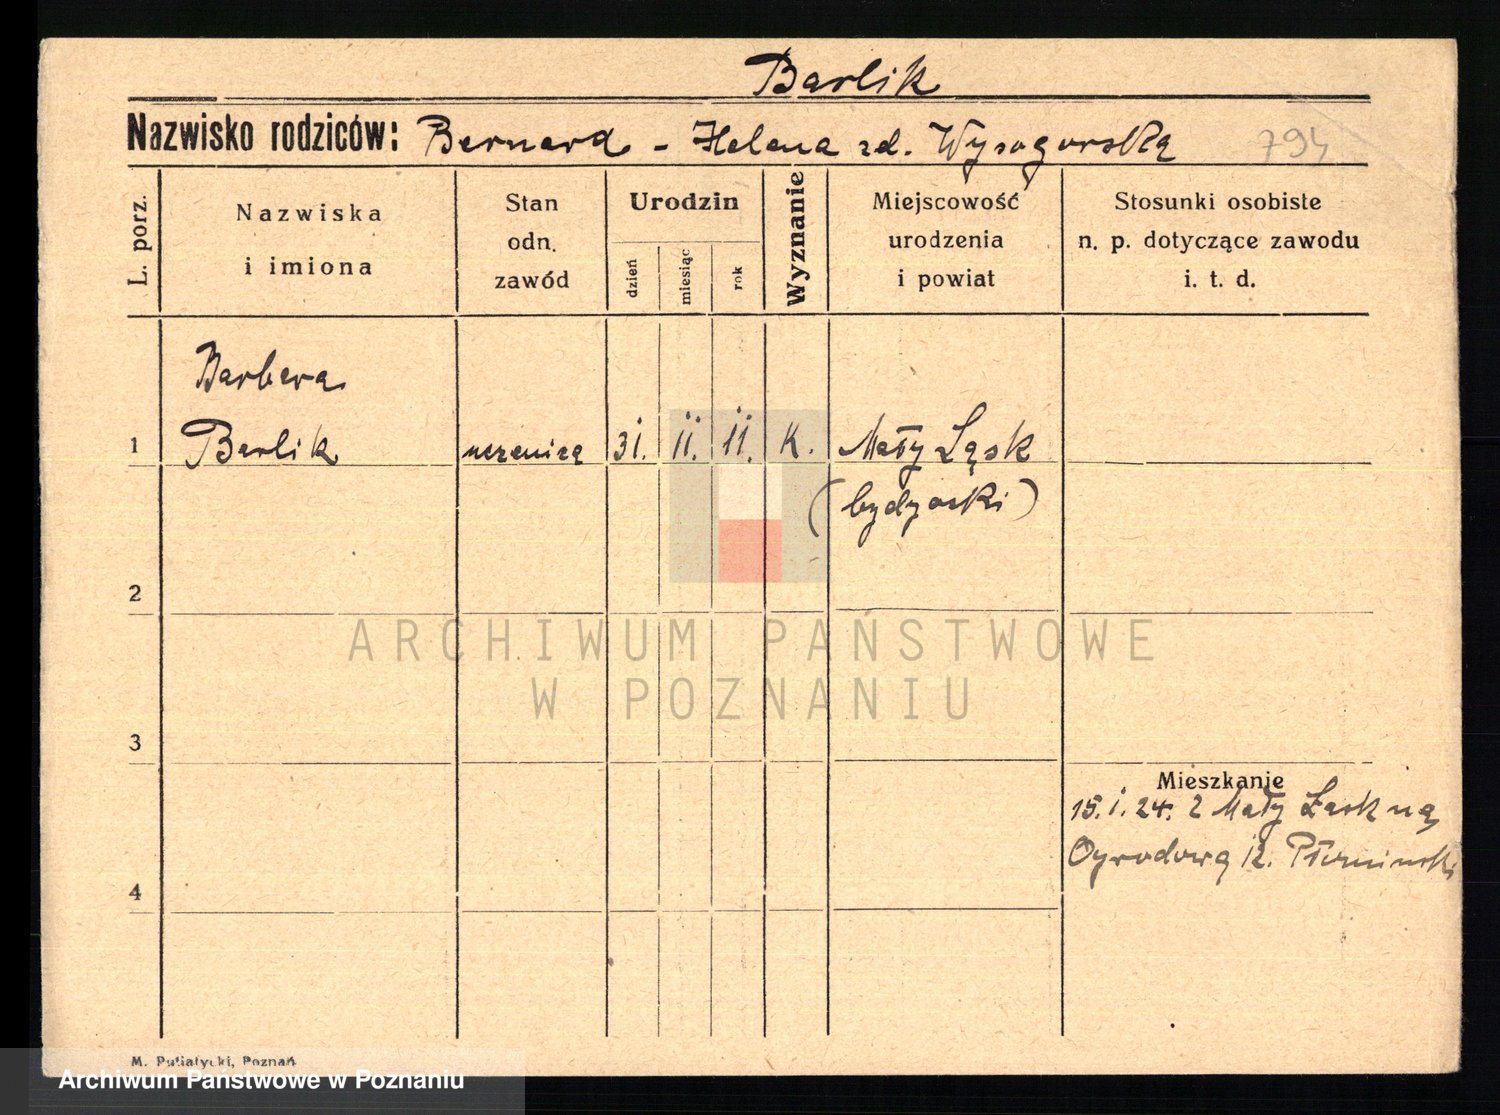 Barlik
Nazwisko rodziców: Bernard - Helena zd. Wysogorska
794
L. porz.
Nazwiska
i imiona
Stan
odn.
zawód
Urodzin
dzień
miesiąc
rok
Wyznanie
Miejscowość
urodzenia
i powiat
Stosunki osobiste
n. p. dotyczące zawodu
i. t. d.
Barbara
1 Barlik uczenica 31. II. 11. K. Mały Łąsk
(bydgoski)
2
ARCHIWUM PAŃSTWOWE
W POZNANIU
3
Mieszkanie
15. I. 24. z Mały Łask na
Ogrodową 12.
4
M. Putiatycki, Poznań
Archiwum Państwowe w Poznaniu